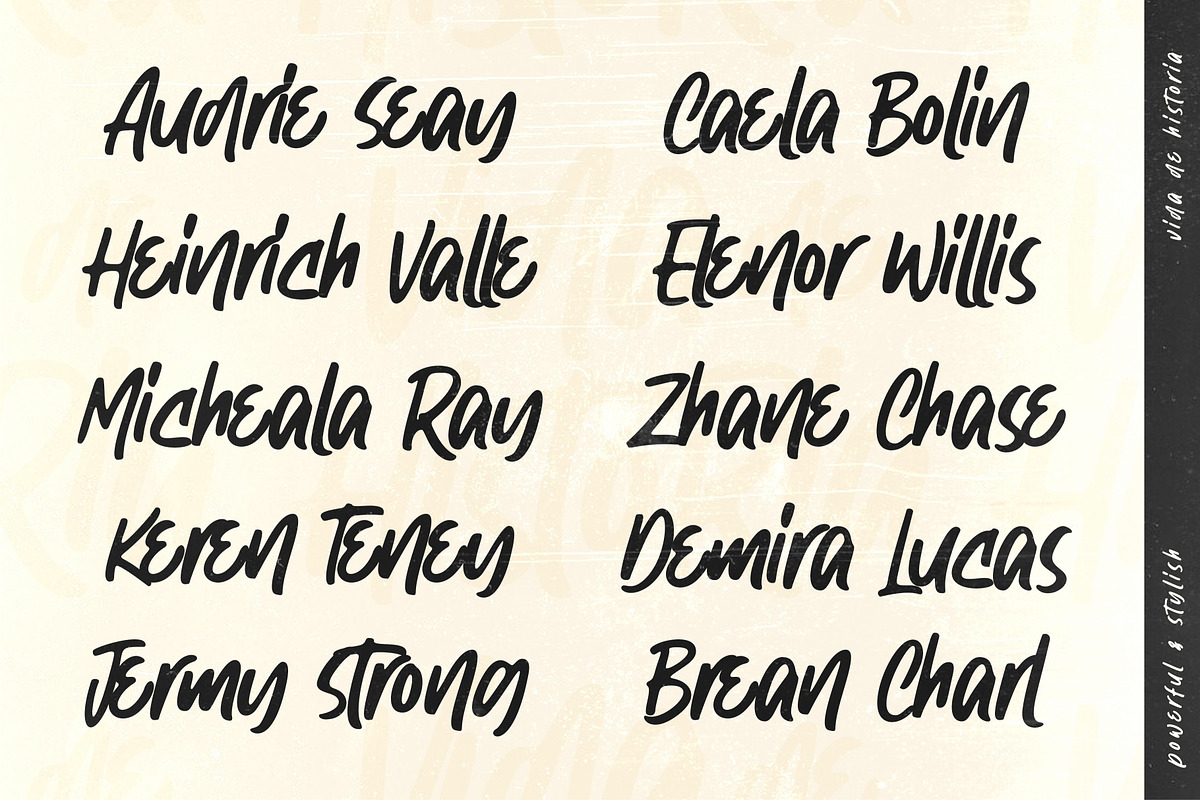 Audrie Seay
Caela Bolin
Heinrich Valle
Elenor Willis
Micheala Ray
Zhane Chase
Keren Teney
Demira Lucas
Jermy Strong
Brean Charl
vida de historia
powerful & stylish